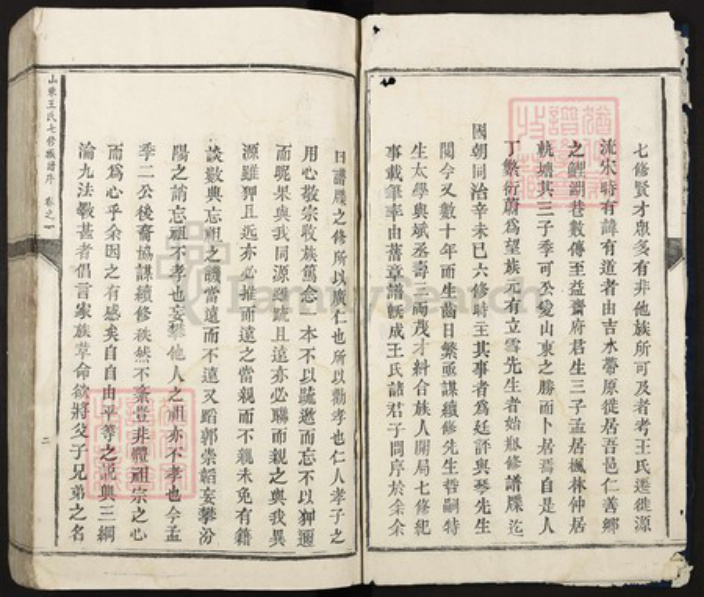 七修賢才眾多有非他族所可及者考王氏遷徙源
流宋時有諱有道者由吉水帶原徙居吾邑仁善鄉
之鯉湖巷數傳至益齋府君生三子孟居楓林仲居
軌塘其三子季可公愛山東之勝而卜居焉自是人
丁繁衍蔚為望族元有立雪先生者始刱修譜牒迄
國朝同治辛未已六修時主其事者為廷評與琴先生
閱今又數十年而生齒日繁亟謀續修先生哲嗣特
生太學與斌丞壽三兩茂才紏合族人開局七修紀
事載筆率由舊章譜旣成王氏諸君子問序於余余
曰譜牒之修所以廣仁也所以勸孝也仁人孝子之
用心敬宗收族篤念一本不以疏邈而忘不以狎邇
而昵果與我同源雖疏且遠亦必聯而親之與我異
源雖狎且近亦必推而遠之當親而不親未免有籍
談數典忘祖之譏當遠而不遠又蹈郭崇韜妄攀汾
陽之誚忘祖不孝也妄攀他人之祖亦不孝也今孟
季二公後裔協謀續修秩然不紊豈非體祖宗之心
而為心乎余因之有感矣自自由平等之說興三綱
淪九法斁甚者倡言家族革命欲將父子兄弟之名
山東王氏七修族譜序 卷之一
二
FamilySearch